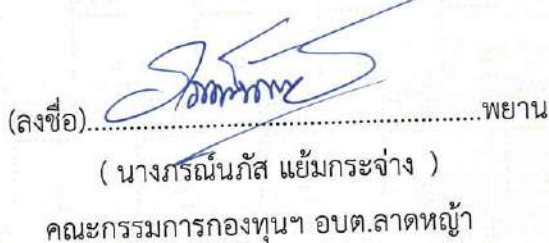 (ลงชื่อ)....................................................พยาน
( นางภรณ์นภัส แย้มกระจ่าง )
คณะกรรมการกองทุนฯ อบต.ลาดหญ้า